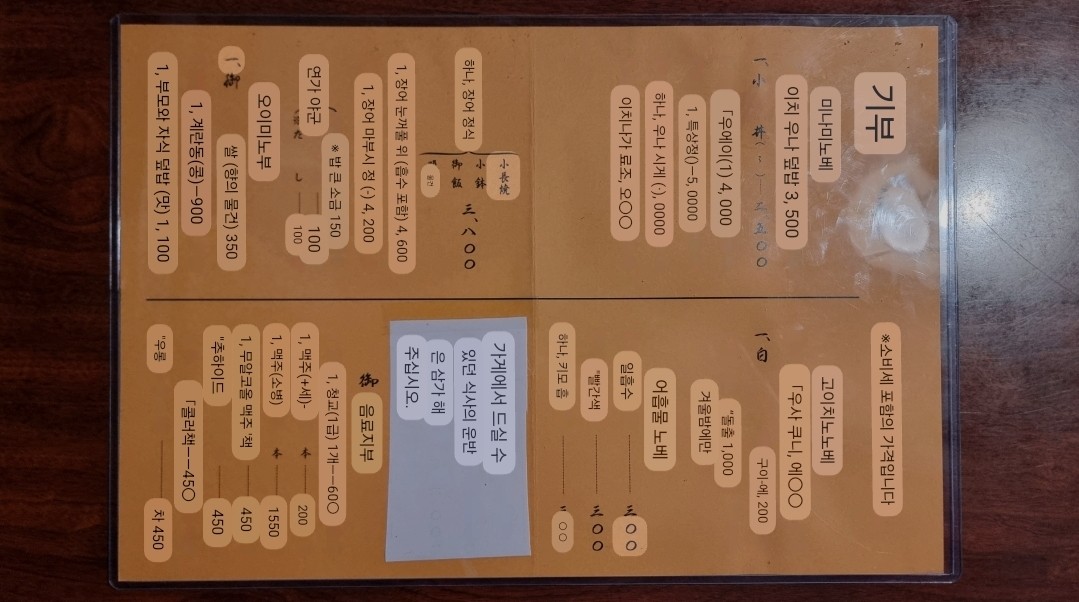 기부
미나미노베
이치 우나 덮밥 3, 500
一、小 丼(～)― 二五〇〇
「우에이(1) 4, 000
1, 특상정()–5, 0000
하나, 우나 시계 (·), 0000
이치나가 료조, 오〇〇
小長焼
하나, 장어 정식 小鉢 三、八〇〇
御飯
물건
1, 장어 눈꺼풀 위 (흡수 포함) 4, 600
1, 장어 마부시 정 (·) 4, 200
※ 밥 큰 소금 150
연가 야군 100
100
오이미노부
一、御 쌀 (향의 물건) 350
1, 계란동(콩)—900
1, 부모와 자식 덮밥 (맛) 1, 100
※소비세 포함의 가격입니다
고이치노노베
「우사 쿠니, 에〇〇
一、白 구이-에, 200
"돌출 1,000
겨울밤에만
어흡물 노베
일흡수 三〇〇
"빨간색 三〇〇
하나, 키모 흡 〇〇
가게에서 드실 수
있던 식사의 운반
은 삼가 해
주십시오.
御 음료지부
1, 청교(1급) 1개——60〇
1, 맥주(+세)- 本 200
1, 맥주(소병) 本 1550
1, 무알코올 맥주 ·책 450
"추하이드 450
「콜러책——45〇
"우롱 차 450